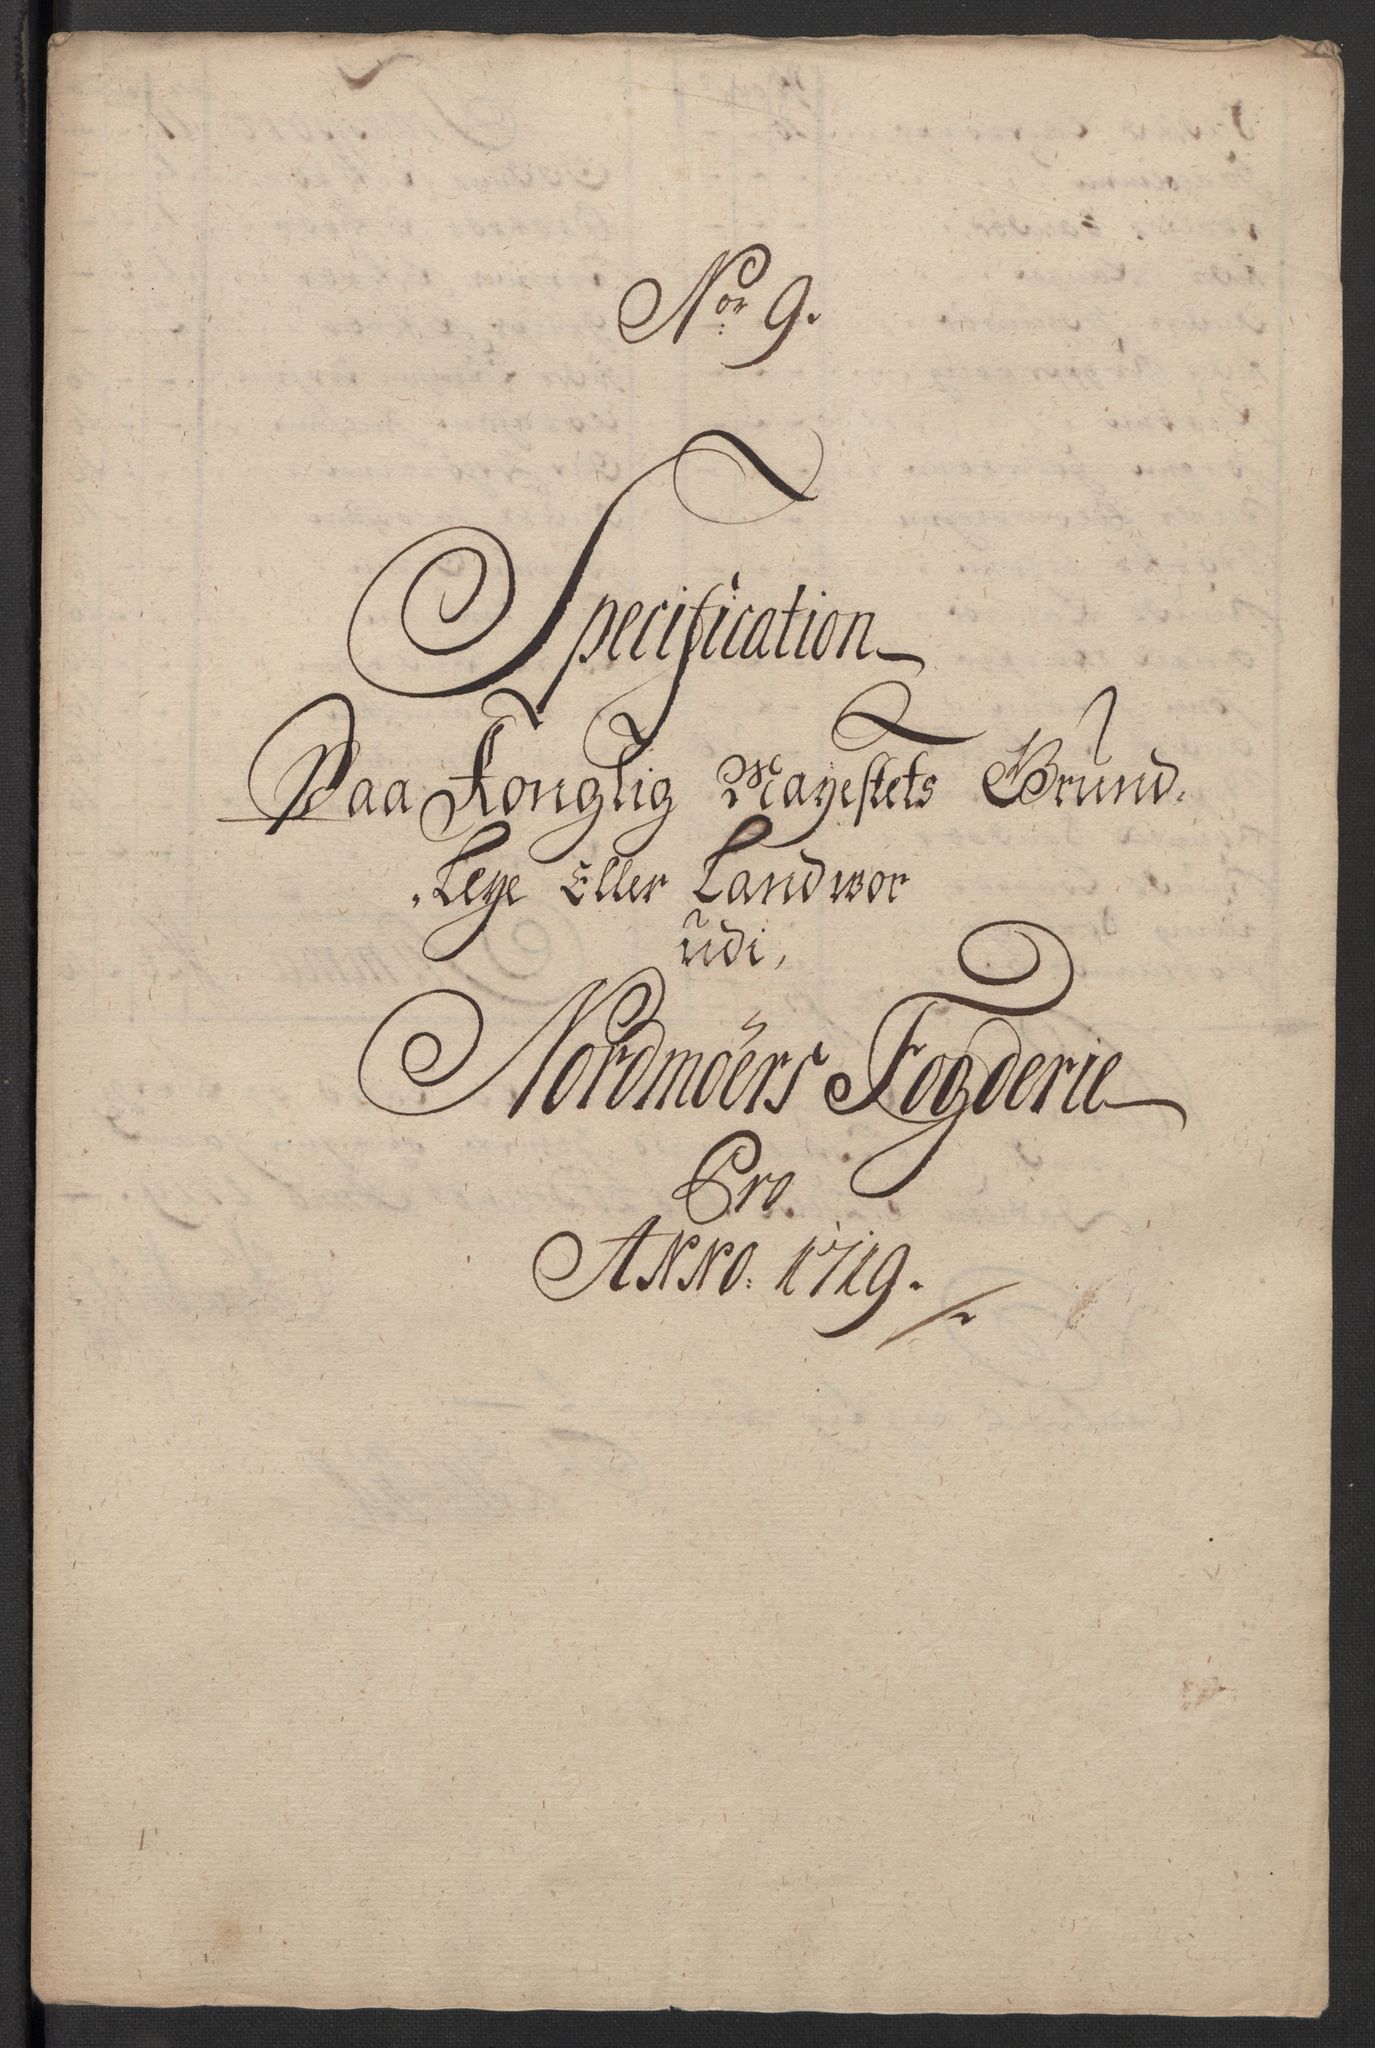 No:r 9.
Specification
Paa Konglig Mayestets Grund-
Leye Eller Landwor
udi,
Nordmöers Fogderie
Pro
Anno: 1719.